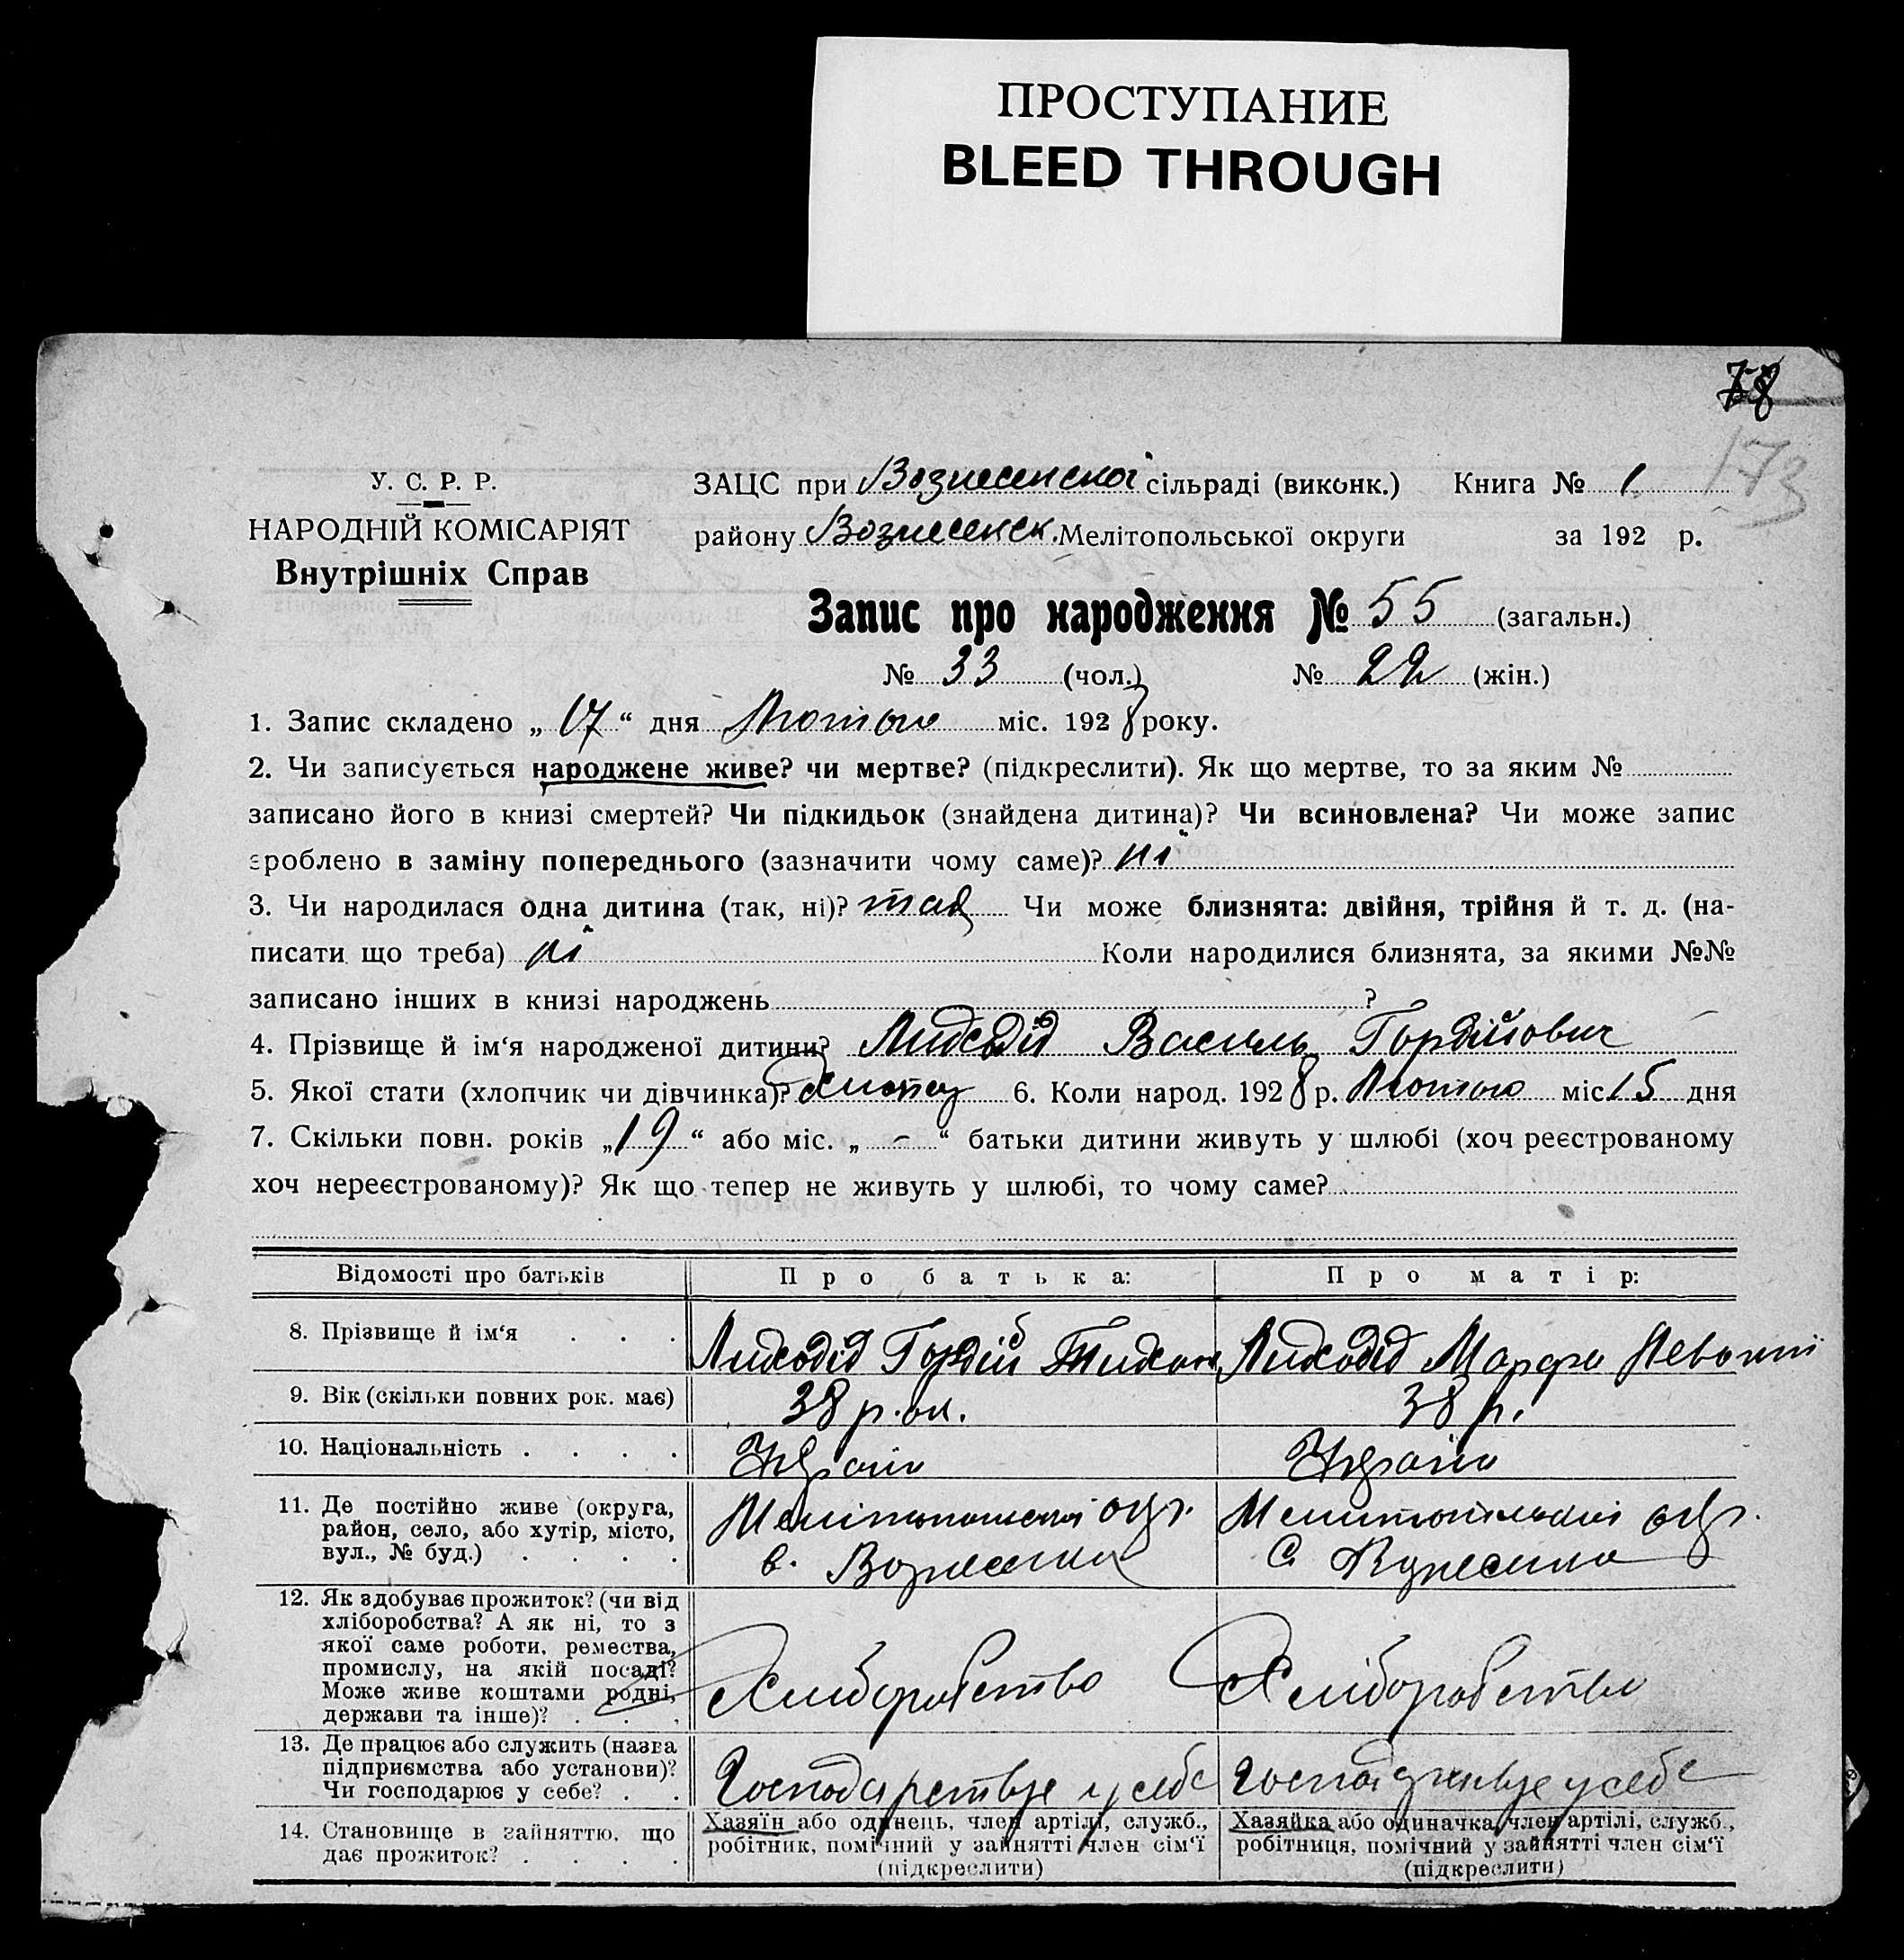 ПРОСТУПАНИЕ
BLEED THROUGH
78
173
У. С. Р. Р.
НАРОДНІЙ КОМІСАРІЯТ
Внутрішніх Справ
ЗАЦС при Вознесенской сільраді (виконк.) Книга № 1
району Вознесенск. Мелітопольської округи за 192 р.
Запис про народження № 55 (загальн.)
№ 33 (чол.) № 22 (жін.)
1. Запис складено „ 17 “ дня Лютого міс. 1928 року.
2. Чи записується народжене живе? чи мертве? (підкреслити). Як що мертве, то за яким №
записано його в книзі смертей? Чи підкидьок (знайдена дитина)? Чи всиновлена? Чи може запис
зроблено в заміну попереднього (зазначити чому саме)? ні
3. Чи народилася одна дитина (так, ні)? так Чи може близнята: двійня, трійня й т. д. (на-
писати що треба) ні Коли народилися близнята, за якими №№
записано інших в книзі народжень ?
4. Прізвище й ім‘я народженої дитини? Лиходід Василь Гордійович
5. Якої стати (хлопчик чи дівчинка)? 6. Коли народ. 1928 р. Лютого міс. 15 дня
7. Скільки повн. років „ 19 “ або міс. „ - “ батьки дитини живуть у шлюбі (хоч реєстрованому
хоч нереєстрованому)? Як що тепер не живуть у шлюбі, то чому саме?
Відомості про батьків Про батька: Про матір:
8. Прізвище й ім‘я Лиходід Гордій Тихон Лиходід Марфа
9. Вік (скільки повних рок. має) 38 р. 38 р.
10. Національність Україн Україн
11. Де постійно живе (округа,
район, село, або хутір, місто,
вул., № буд.)
Мелітопольской окр. Мелитопільської окр.
с. Вознесенка С. Вознесенка
12. Як здобуває прожиток? (чи від
хліборобства? А як ні, то з
якої саме роботи, ремества,
промислу, на якій посаді?
Може живе коштами родні,
держави та інше)?
Хліборобство Хліборобство
13. Де працює або служить (назва
підприємства або установи)?
Чи господарює у себе?
у себе у себе
14. Становище в зайняттю, що
дає прожиток?
Хазяїн або одинець, член артілі, служб.,
робітник, помічний у зайнятті член сім‘ї
(підкреслити)
Хазяйка або одиначка, член артілі, служб.,
робітниця, помічний у зайнятті член сім‘ї
(підкреслити)